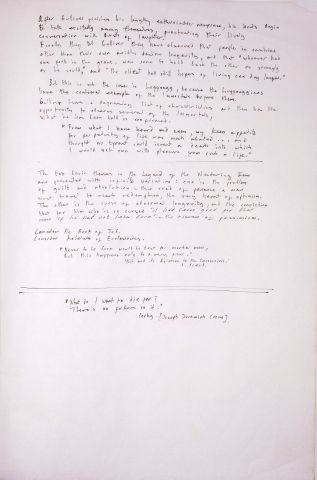 After Gulliver finishes his lengthy enthusiastic response, his hosts begin
to talk excitedly among themselves, punctuating their lively
conversation with bursts of laughter.
Finally they tell Gulliver they have observed that people in countries
other than their own exhibit desire longevity, and that "whoever had
one foot in the grave, was sure to hold back the other as strongly
as he could," and "the oldest had still hopes of living one day longer."
But this is not the case in Luggnagg, because the Luggnaggians
have the continual example of the immortals before them.
Gulliver hears a list of characteristics and then has the
opportunity to observe several of the immortals;
what he has been told is confirmed:
"From what I have heard and seen, my keen appetite
for perpetuity of life was much abated . . . and
thought no tyrant could invent a death into which
I would not run with pleasure from such a life."
The two basic themes in the Legend of the Wandering Jew
are presented with infinite variation: one is the problem
of guilt and absolution - the of penance a man
must to merit redemption, the very heart of optimism.
The other is the curse of abnormal longevity, and the conviction
that for him who's so cursed it had been good for that
man if he had not been born - the essence of pessimism.
Consider the Book of Job.
Consider Koheleth or Ecclesiastes.
"Never to be born would be best for mortal man,
but this happens only to a very few."
'Wit and its Relation to the Unconscious'
S. Freud.
"What do I want to die for?
There's no future in it."
Corky - [Joseph Jeremiah ]